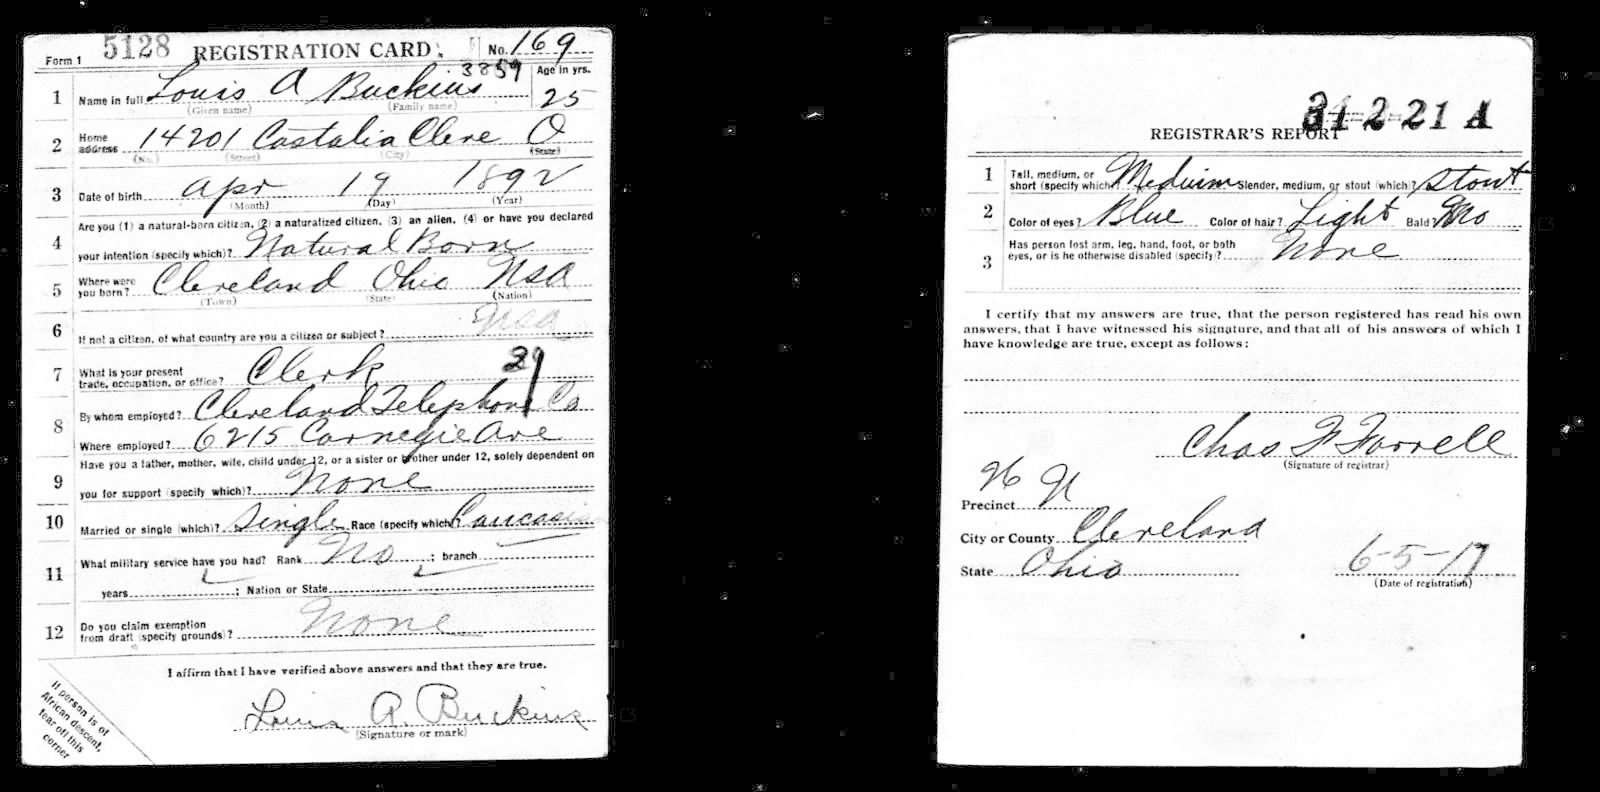 Form 1 5128 REGISTRATION CARD. No. 169
3859 Age in yrs.
1 Name in full Louis A Buckius 25
(Given name) (Family name)
2 Home address 14201 Castalia Cleve O
(No.) (Street) (City) (State)
3 Date of birth Apr 19 1892
(Month) (Day) (Year)
Are you (1) a natural-born citizen, (2) a naturalized citizen, (3) an alien, (4) or have you declared
4 your intention (specify which)? Natural Born
5 Where were you born? Cleveland Ohio USA
(Town) (State) (Nation)
6 If not a citizen, of what country are you a citizen or subject? USA
7 What is your present trade, occupation, or office? Clerk 29
8 By whom employed? Cleveland Telephone Co
Where employed? 6215 Carnegie Ave
Have you a father, mother, wife, child under 12, or a sister or brother under 12, solely dependent on
9 you for support (specify which)? None
10 Married or single (which)? Single Race (specify which)? Caucasian
11 What military service have you had? Rank No ; branch
years ; Nation or State
12 Do you claim exemption from draft (specify grounds)? None
I affirm that I have verified above answers and that they are true.
Louis A. Buckius
(Signature or mark)
If person is of
African descent,
tear off this
corner
31-2-21 A
REGISTRAR'S REPORT
1 Tall, medium, or short (specify which)? Medium Slender, medium, or stout (which)? Stout
2 Color of eyes? Blue Color of hair? Light Bald? No
3 Has person lost arm, leg, hand, foot, or both eyes, or is he otherwise disabled (specify)? None
I certify that my answers are true, that the person registered has read his own
answers, that I have witnessed his signature, and that all of his answers of which I
have knowledge are true, except as follows:
Chas F Farrell
(Signature of registrar)
Precinct 26 N
City or County Cleveland
State Ohio 6-5-17
(Date of registration)